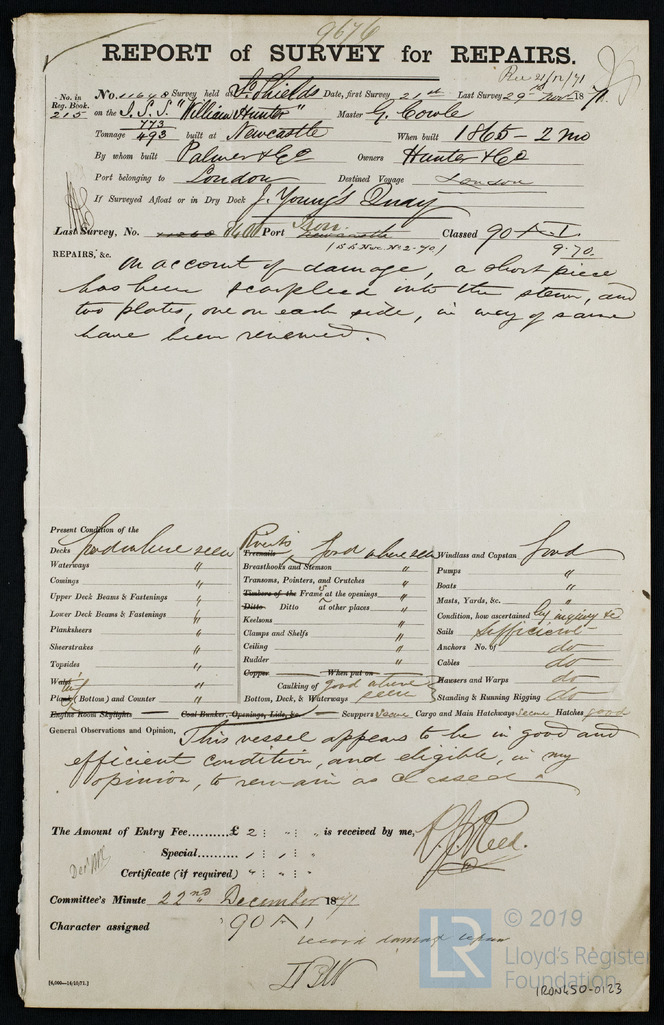 9676
REPORT of SURVEY for REPAIRS.
Rec 21/12/71
No. in Reg. Book. No. 11648 Survey held at So. Shields Date, first Survey 21st Last Survey 29th Nov. 1871
215 on the I.S.S. "William Hunter" Master G. Cowle
Tonnage 773 493 built at Newcastle When built 1865 - 2 mo
By whom built Palmer & Co Owners Hunter & Co
Port belonging to London Destined Voyage London
If Surveyed Afloat or in Dry Dock J. Young's Quay
Last Survey, No. Port Iron Classed 90 A 1
9.70
REPAIRS, &c. On account of damage, a short piece
has been scarphed into the stem, and
two plates, one on each side, in way of same
have been renewed.
Present Condition of the
Decks Good where seen
Waterways "
Comings "
Upper Deck Beams & Fastenings "
Lower Deck Beams & Fastenings "
Planksheers "
Sheerstrakes "
Topsides "
Wales "
Plank (Bottom) and Counter "
Engine Room Skylights — Coal Bunker, Openings, Lids, &c — Scuppers Seem Cargo and Main Hatchways Seem Hatches good
Rivets
Treenails, Good where seen
Breasthooks and Stemson "
Transoms, Pointers, and Crutches "
Timbers of the Frame at the openings "
Ditto Ditto at other places "
Keelsons "
Clamps and Shelfs "
Ceiling "
Rudder "
Copper — When put on —
Caulking of Bottom, Deck, & Waterways good where seen
Windlass and Capstan Good
Pumps "
Boats "
Masts, Yards, &c. "
Condition, how ascertained By inquiry &c
Sails Sufficient
Anchors No. of do
Cables do
Hawsers and Warps do
Standing & Running Rigging do
General Observations and Opinion, This vessel appears to be in good and
efficient condition, and eligible, in my
opinion, to remain as classed.
The Amount of Entry Fee..........£ 2 : " : " is received by me,
R. J. Reed.
Special.......... 1 : 1 : "
Certificate (if required) " : " : "
Committee's Minute 22nd December 1871
Character assigned 90 A 1
record damage repair
[6,000—14/10/71.]
© 2019
LR Lloyd's Register
Foundation
IRON450-0123